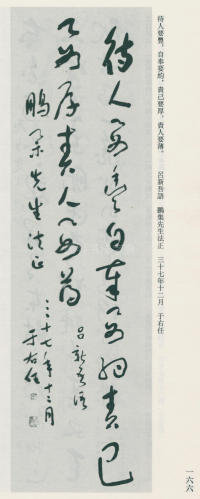 待人要豐，自奉要約，責己要厚，責人要薄。　呂新吾語　鵬集先生法正　三十七年十二月　于右任
待人要豐自奉要約責己
要厚責人要薄
呂新吾語
鵬集先生法正
三十七年十二月
于右任
一六六